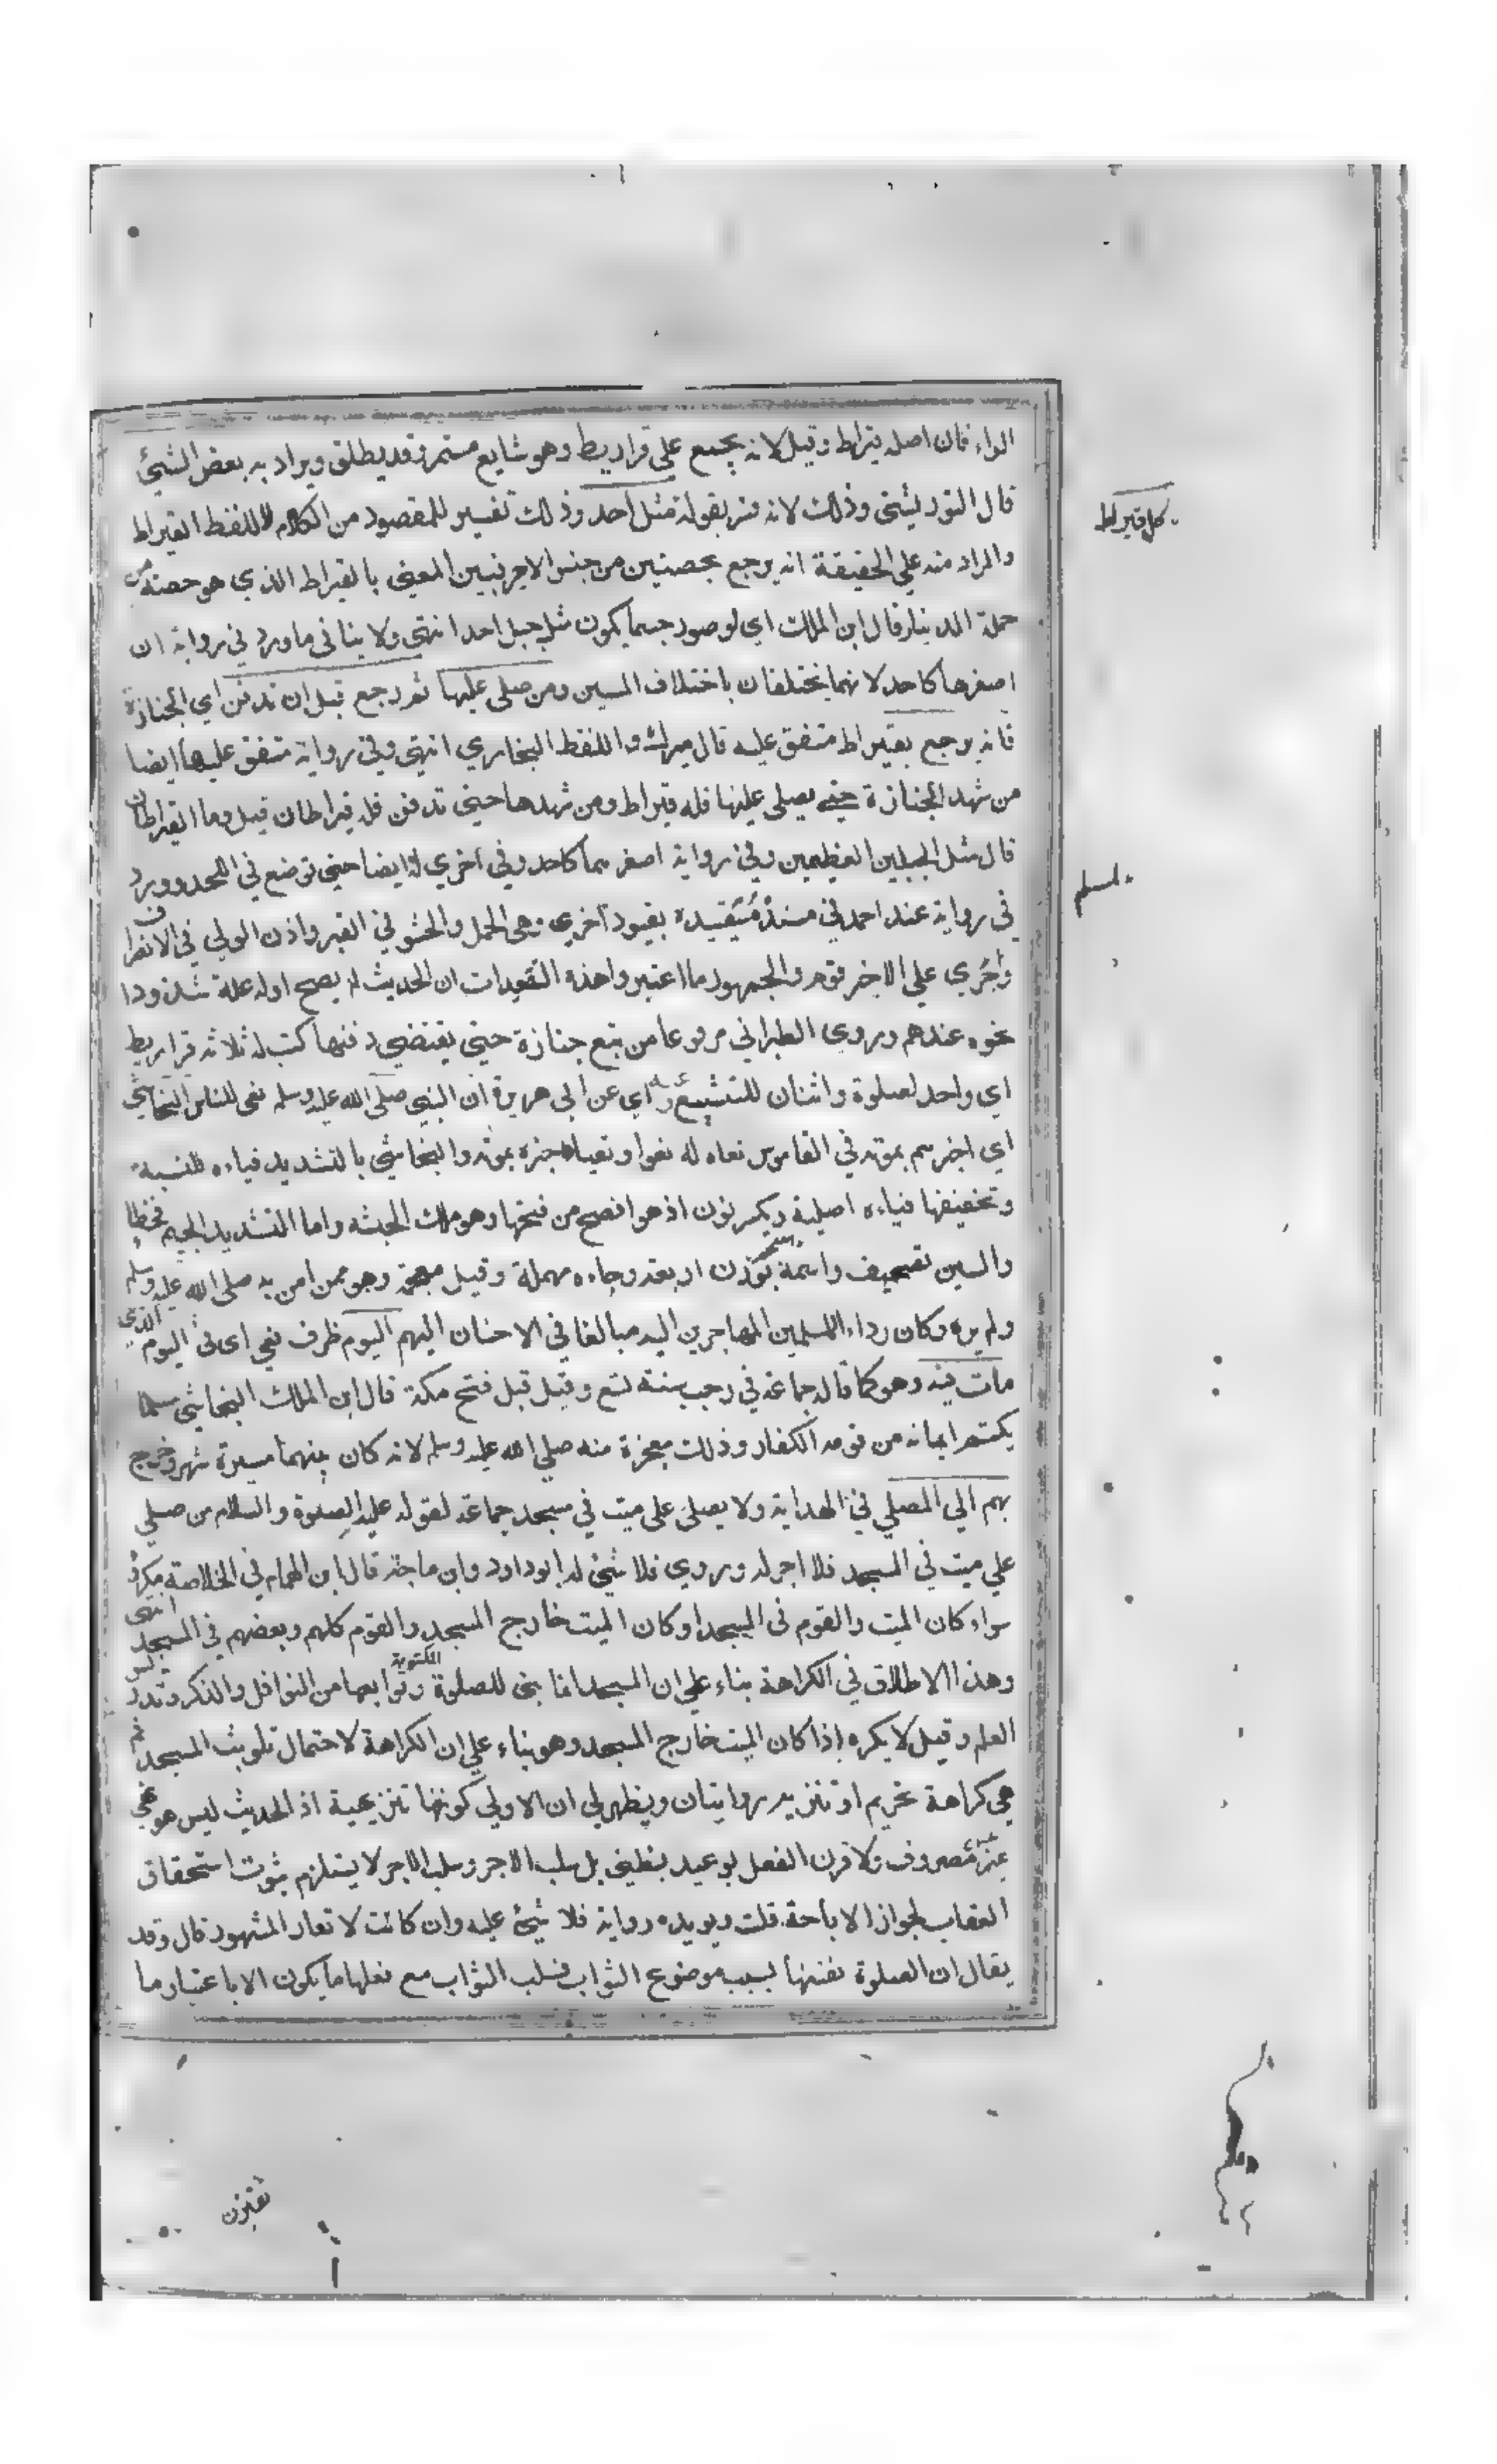 الراء فان اصله قراط وقيل لانه يجمع على قراريط وهو شايع مستمر وقد يطلق ويراد به بعض الشيئ
قال التوربشتى وذلك لانه فسر بقوله مثل احد وذلك تفسير للمقصود من الكلام لا للفظ القيراط
كل قيراط
والمراد منه علي الحقيقة انه يرجع بحصتين من جنس الاجر فبين المعنى بالقيراط الذي هو حصة من
جملة الدينار قال ابن الملك اي لو صور جسما يكون مثل جبل احد انتهى ولا ينافى ما ورد في رواية ان
اصغرها كاحد لانهما يختلفان باختلاف المسين ومن صلى عليها ثم رجع قبل ان تدفن اي الجنازة
فانه يرجع بقيراط متفق عليه قال ميرك واللفظ البخاري انتهى وفي رواية متفق عليها ايضا
من شهد الجنازة حتى يصلى عليها فله قيراط ومن شهدها حتى تدفن فله قيراطان قيل وما القيراطان
قال مثل الجبلين العظيمين وفي رواية اصغرهما كاحد وفي اخري له ايضا حتى توضع في اللحد وورد
لمسلم
في رواية عند احمد في مسنده مقيدة بقيود اخري وهى الحمل والحثو في القبر واذن الولي في الانصراف
وجري علي الاخر قوم والجمهور ما اعتبروا هذه التقيدات ان الحديث لم يصح او له علة شذوذا
نحوه عندهم وروى الطبراني مرفوعا من تبع جنازة حتى يقتضي دفنها كتب له ثلاثة قراريط
اي واحد لصلوة واثنان للتشييع وعنه اي عن ابى هريرة ان النبي صلى الله عليه وسلم نعى للناس النجاشي
اي اخبرهم بموته في القاموس نعاه له نعوا ونعيا اخبره بموته والنجاشي بالتشديد فياءه للنسبة
وتخفيفها فياءه اصلية وبكسر نون اذ هو افصح من فتحها وهو ملك الحبشة واما التشديد الجيم فخطا
والسين تصحيف واسمه اصحمة بوزن اربعة وحاءه مهملة وقيل معجمة وهو ممن امن به صلى الله عليه وسلم
ولم يره وكان رداء للمسلمين المهاجرين اليه مبالغا في الاحسان اليهم اليوم ظرف نعي اى فى اليوم الذي
مات فيه وهو كما قاله جماعة في رجب سنة تسع وقيل قبل فتح مكة قال ابن الملك النجاشي مسلما
يكتم ايمانه من قومه الكفار وذلك معجزة منه صلي الله عليه وسلم لانه كان بينهما مسيرة شهر وخرج
بهم الي المصلي في الهداية ولا يصلى على ميت في مسجد جماعة لقوله عليه الصلوة والسلام من صلي
علي ميت في المسجد فلا اجر له وروي فلا شئ له ابو داود وابن ماجة قال ابن الهمام في الخلاصة مكروه
سواء كان الميت والقوم فى المسجد او كان الميت خارج المسجد والقوم كلهم وبعضهم في المسجد انتهى
وهذا الاطلاق في الكراهة بناء علي ان المسجد انما بنى للصلوة المكتوبة وتوابعها من النوافل والذكر وتدريس
العلم وقيل لا يكره اذا كان الميت خارج المسجد وهو بناء علي ان الكراهة لاحتمال تلويث المسجد ثم
هي كراهة تحريم او تنزيه روايتان ويظهر لي ان الاولي كونها تنزيهية اذ الحديث ليس هو نهى
غير مصروف ولا قرن الفعل بوعيد بظنى بل سلب الاجر وسلب الاجر لا يستلزم ثبوت استحقاق
العقاب لجواز الاباحة قلت ويويده رواية فلا شيئ عليه وان كانت لا تعار المشهور قال وقد
يقال ان الصلوة نفسها لسبب موضوع الثواب فسلب الثواب مع فعلها ما يكون الا باعتبار ما
يقترن